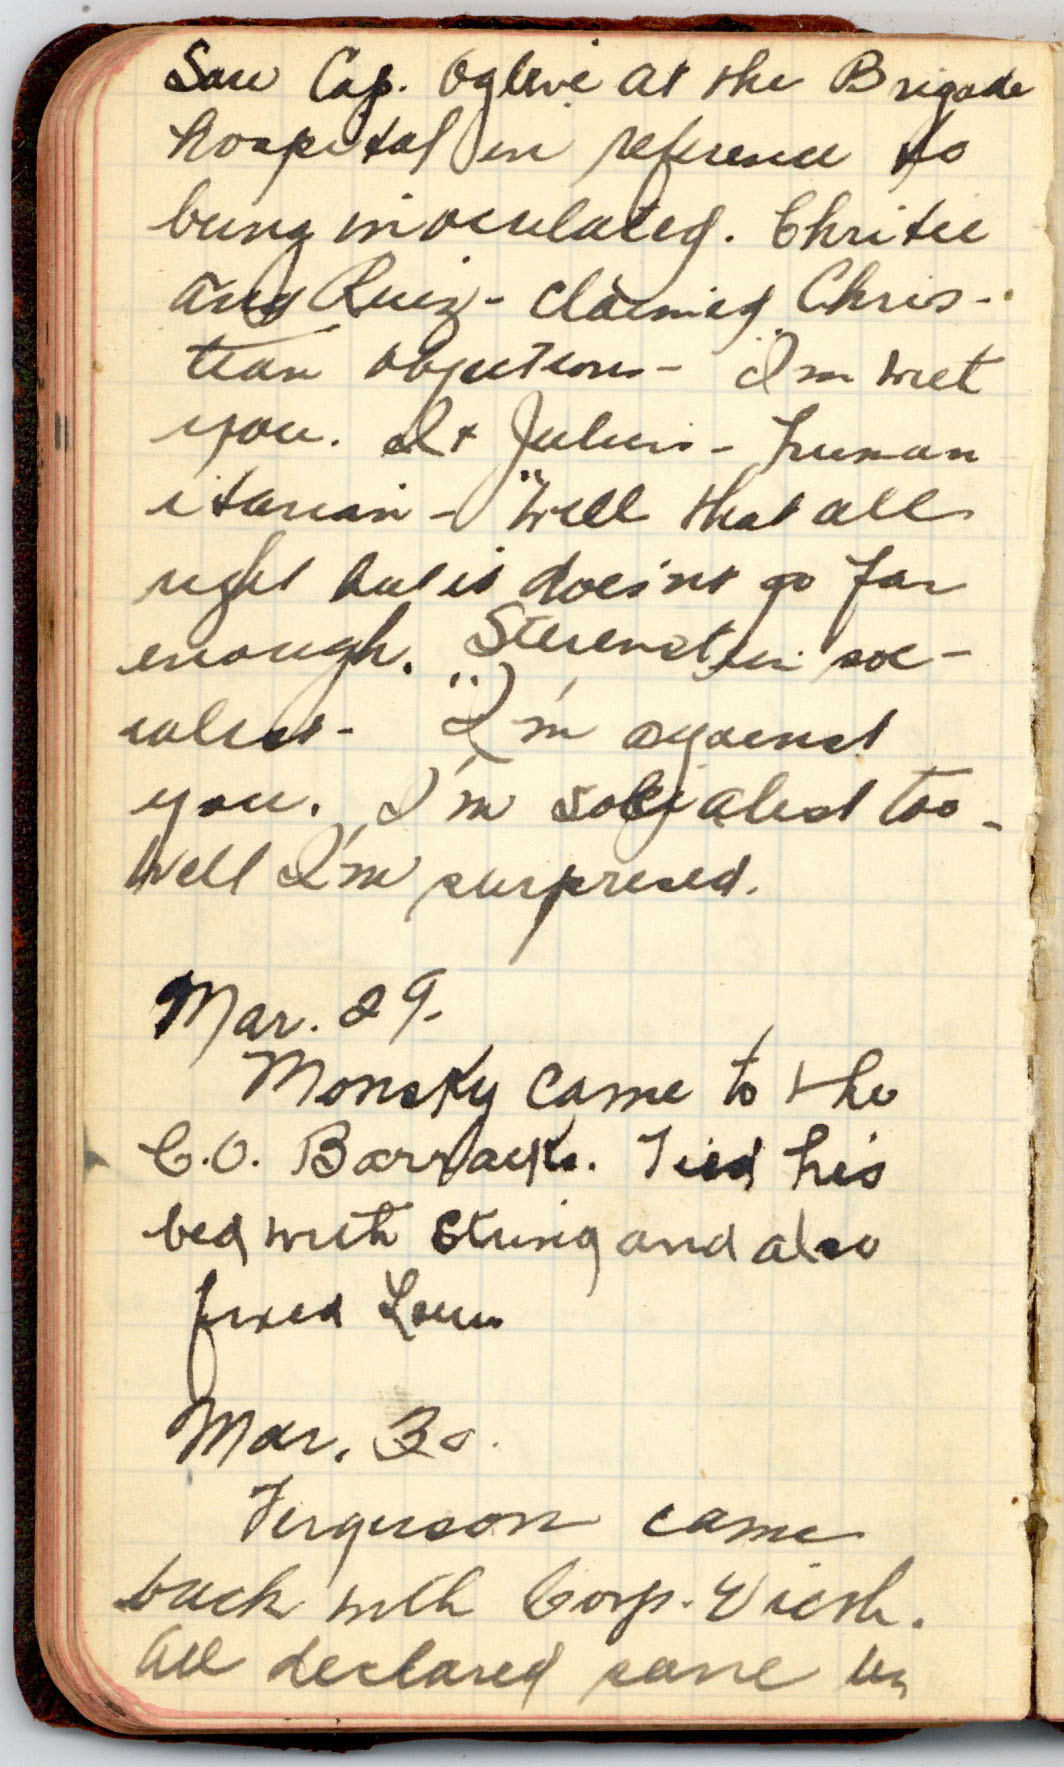 Saw Cap. Oglevie at the Brigade
hospital in reference to
being inoculated. Chritie
and Ruiz - claimed Chris-
tian objections - "I'm with
you. I + Julius - human
itarian - "Well that all
right but it doesn't go far
enough. Sterenstein soc-
ialist - "I'm against
you. I'm socialist too -
Well I'm surprised.
Mar. 29.
Monsky came to the
C.O. Barracks. Tied his
bed with string and also
fixed Louis
Mar. 30.
Ferguson came
back with Corp.
All declared sane in